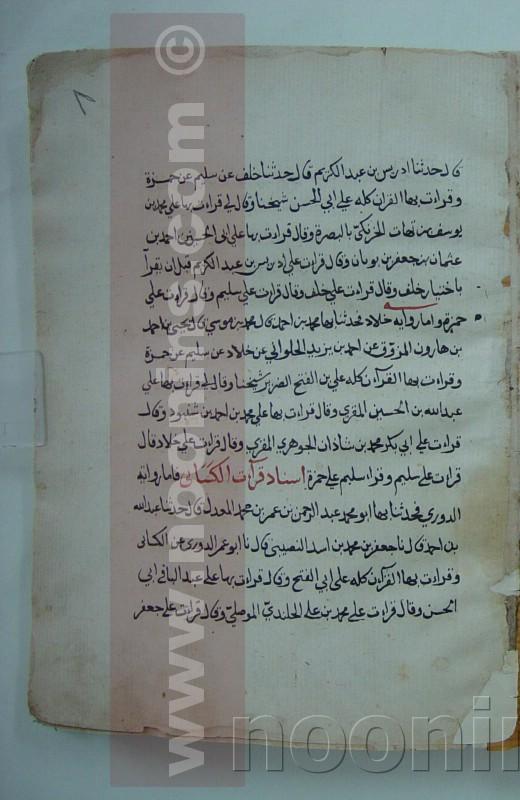 ٨
قال حدثنا ادريس بن عبد الكريم قال حدثنا خلف عن سليم عن حمزة
وقرات بها القران كله على ابي الحسن شيخنا وقال لي قرات بها على محمد بن
يوسف بن نهار الحرتكي بالبصرة وقال قرات بها على ابي الحسين احمد بن
عثمان بن جعفر بن بويان وقال قرات على ادريس بن عبد الكريم قبل ان يقرأ
باختيار خلف وقال قرات على خلف وقال قرات على سليم وقال قرات على
حمزة واما رواية خلاد فحدثنا بها محمد بن احمد قال محمد بن موسى قال يحيى بن احمد
بن هارون المزوق عن احمد بن يزيد الحلواني عن خلاد عن سليم عن حمزة
وقرات بها القرآن كله على بن الفتح الضرير شيخنا وقال لي قرات بها على
عبد الله بن الحسين المقري وقال قرات بها على محمد بن احمد بن شنبود وقال
قرات على ابي بكر محمد بن شاذان الجوهري المقري وقال قرات على خلاد قال
قرات على سليم وقرا سليم على حمزة اسناد قرآت الكسائي فاما رواية
الدوري فحدثنا بها ابو محمد عبد الرحمن بن عمر بن محمد المعدل قال حدثنا عبد الله
بن احمد قال نا جعفر بن محمد بن اسد النصيبي قال نا ابو عمر الدوري عن الكسائي
وقرات بها القرآن كله على ابي الفتح وقال قرات بها على عبد الباقي ابي
الحسن وقال قرات على محمد بن علي الجلندي الموصلي وقال قرات على جعفر
www.noonins.com ©
noonin